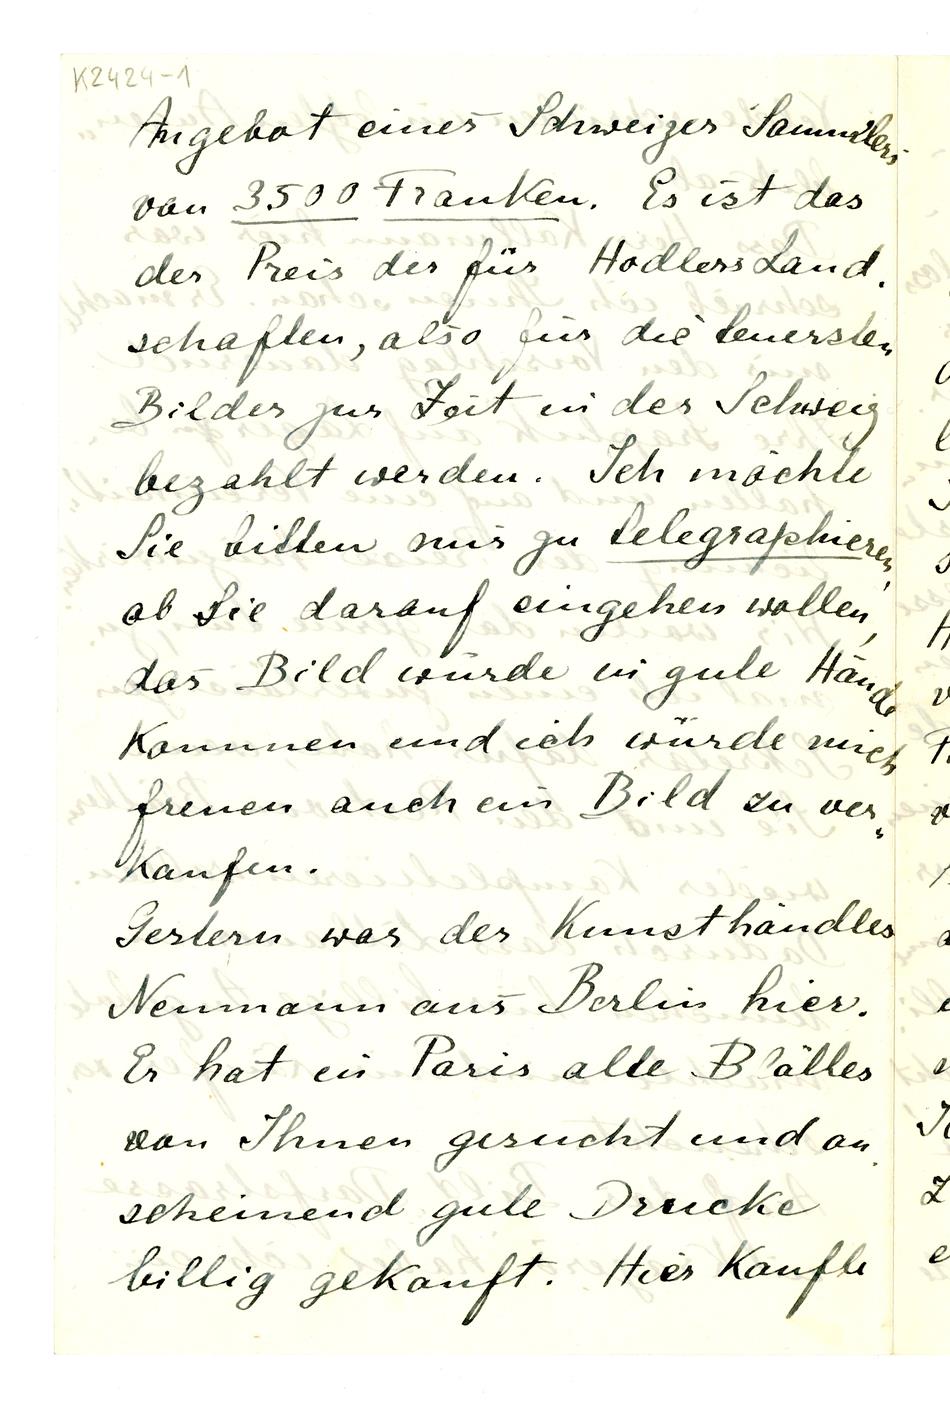 K2424-1
Angebot eines Schweizer Sammlers
von 3500 Franken. Es ist das
der Preis der für Hodlers Land.
schaften, also für die teuersten
Bilder zur Zeit in der Schweiz
bezahlt werden. Ich möchte
Sie bitten mir zu telegraphieren,
ob Sie darauf eingehen wollen,
das Bild würde in gute Hände
kommen und ich würde mich
freuen auch ein Bild zu ver„
kaufen.
Gestern war der Kunsthändler
Neumann aus Berlin hier.
Er hat in Paris alte Blätter
von Ihnen gesucht und an.
scheinend gute Drucke
billig gekauft. Hier kaufte